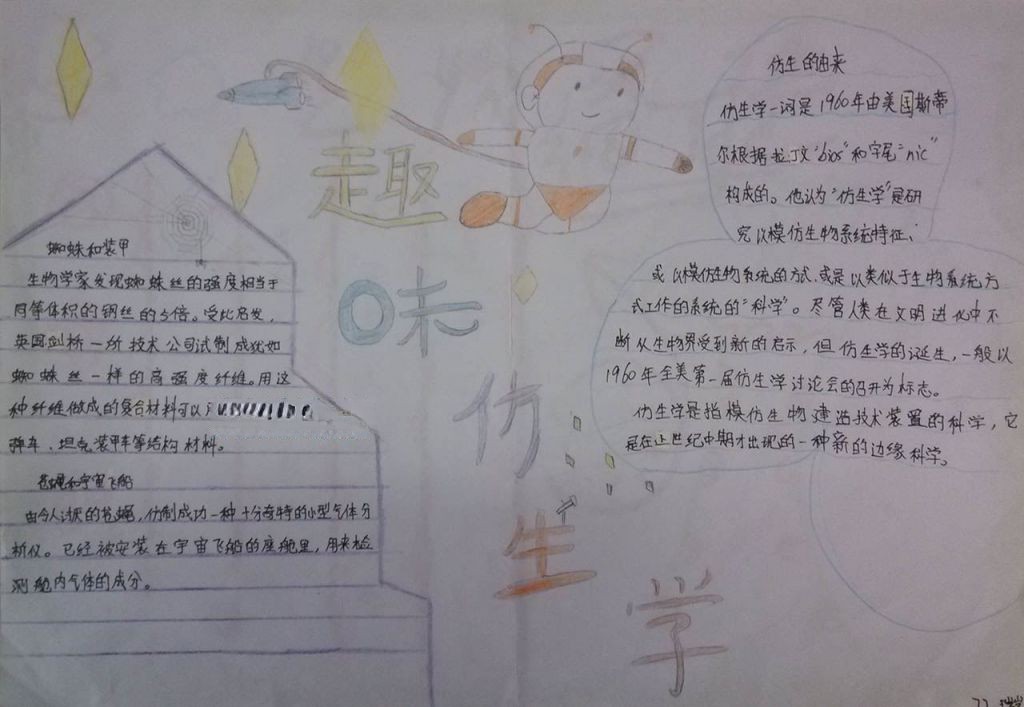 趣味仿生学
蜘蛛和装甲
生物学家发现蜘蛛丝的强度相当于
同等体积的钢丝的5倍。受此启发，
英国剑桥一所技术公司试制成犹如
蜘蛛丝一样的高强度纤维。用这
种纤维做成的复合材料可以
弹车、坦克装甲车等结构材料。
苍蝇和宇宙飞船
由令人讨厌的苍蝇，仿制成功一种十分奇特的小型气体分
析仪。已经被安装在宇宙飞船的座舱里，用来检
测舱内气体的成分。
仿生的由来
仿生学一词是1960年由美国斯蒂
尔根据拉丁文"bios"和字尾"nic"
构成的。他认为"仿生学"是研
究以模仿生物系统特征、
或以模仿生物系统的方式，或是以类似于生物系统方
式工作的系统的"科学"。尽管人类在文明进化中不
断从生物界受到新的启示，但仿生学的诞生，一般以
1960年全美第一届仿生学讨论会的召开为标志。
仿生学是指模仿生物建造技术装置的科学，它
是在上世纪中期才出现的一种新的边缘科学。